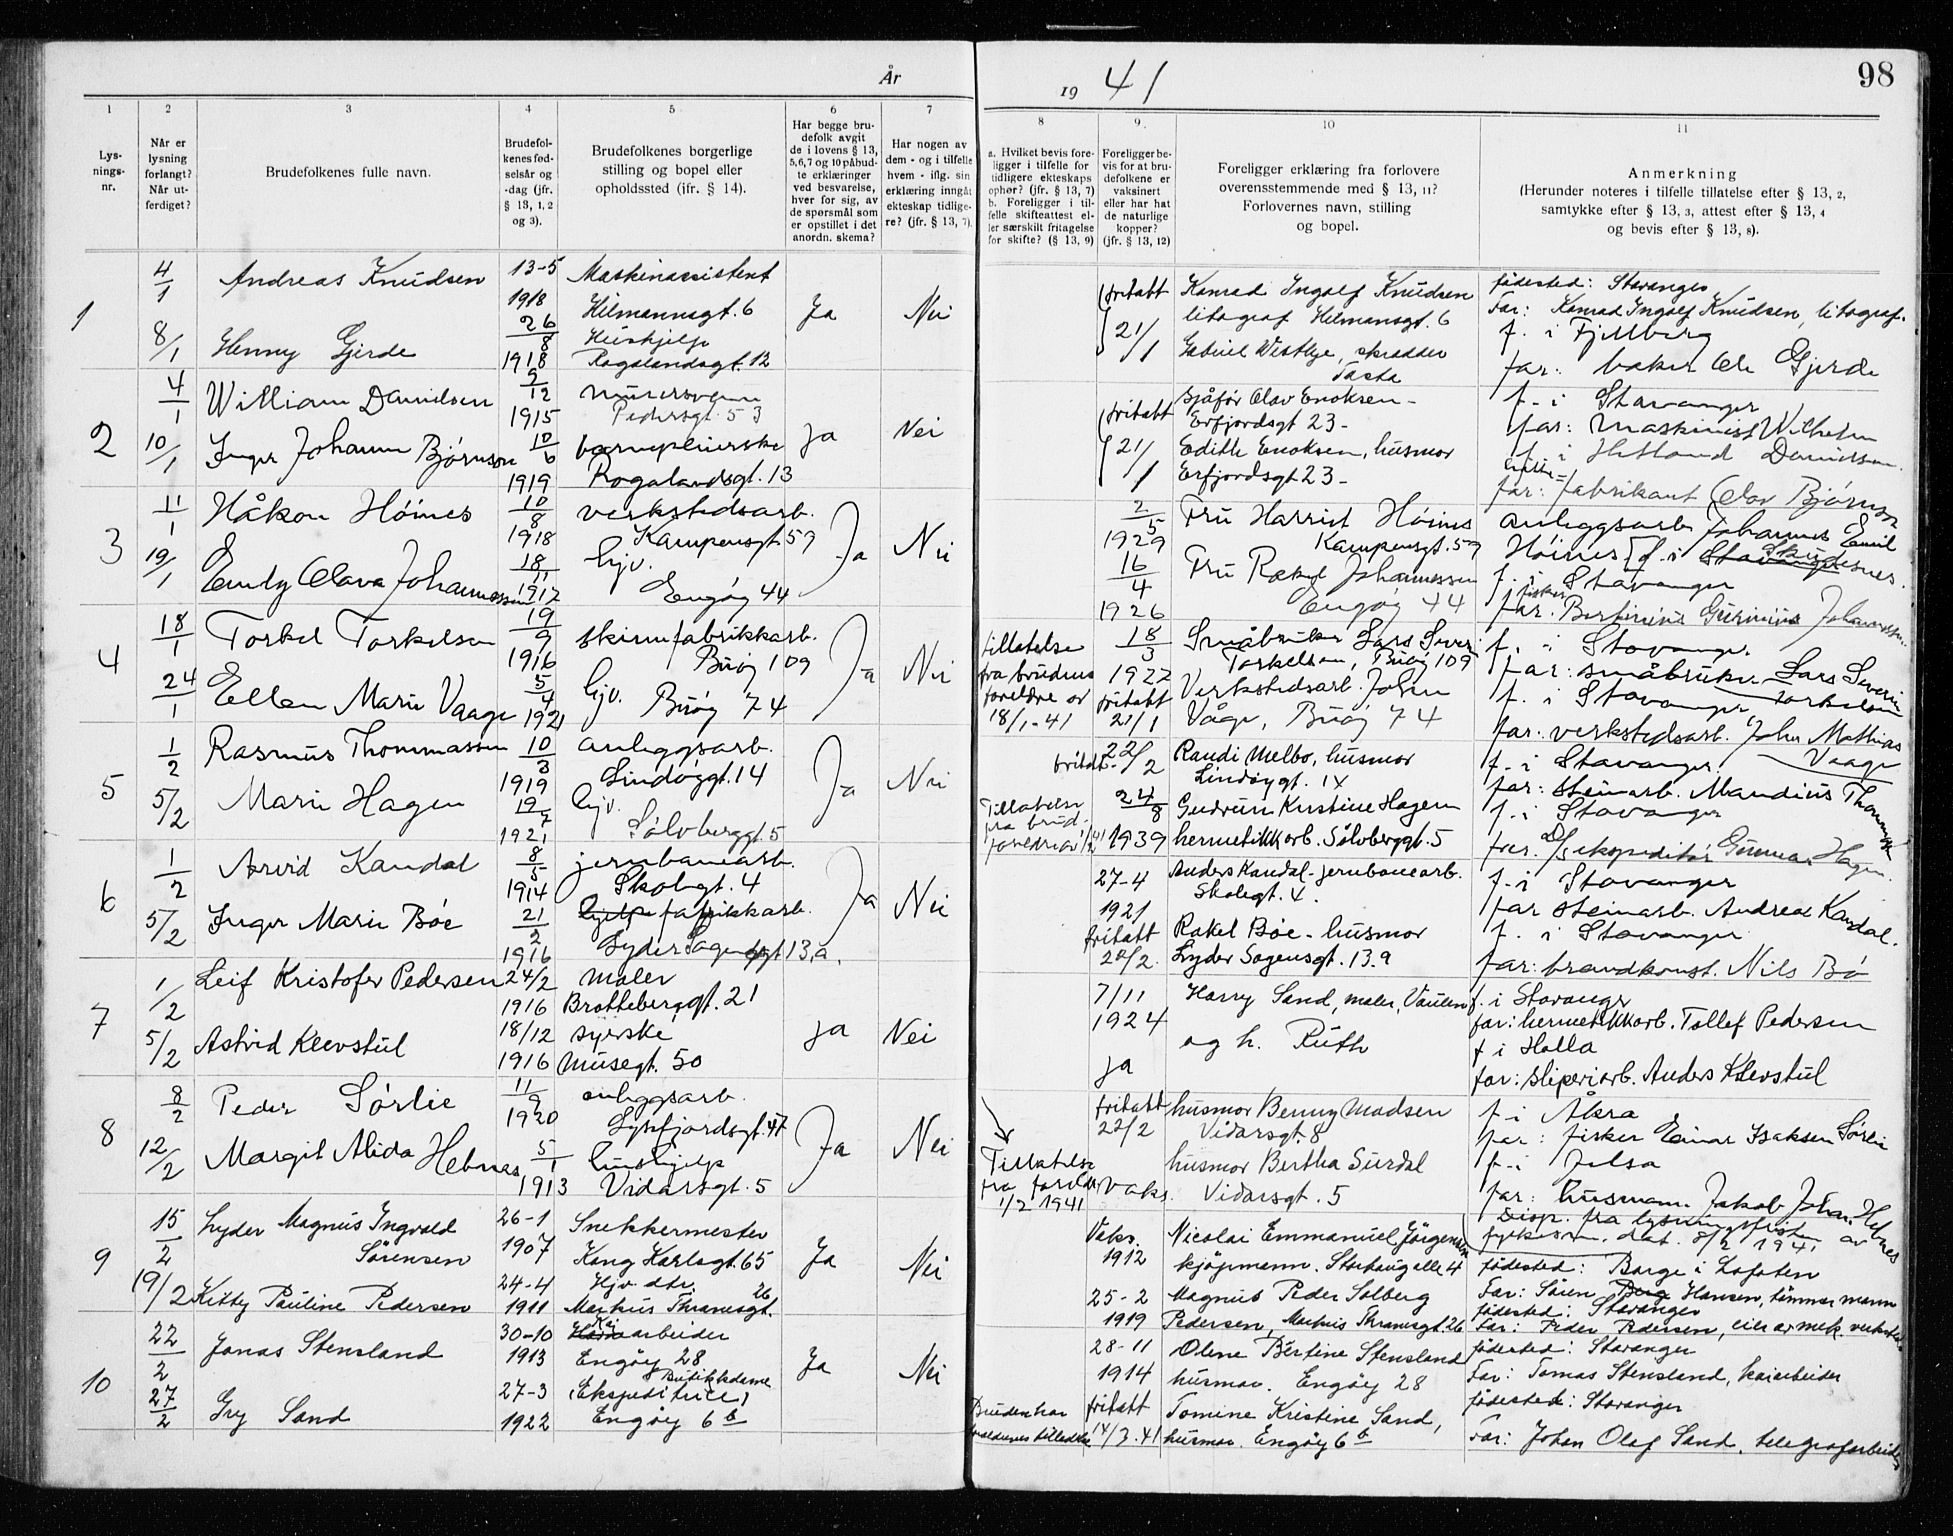 År
19 41
98
1
Lys-
nings-
nr.
2
Når er
lysning
forlangt?
Når ut-
ferdiget?
3
Brudefolkenes fulle navn.
4
Brudefol-
kenes fød-
selsår og
-dag (jfr.
§ 13, 1, 2
og 3).
5
Brudefolkenes borgerlige
stilling og bopel eller
opholdssted (jfr. § 14).
6
Har begge bru-
defolk avgit
de i lovens § 13,
5,6,7 og 10 påbud-
te erklæringer
ved besvarelse,
hver for sig, av
de spørsmål som
er opstillet i det
anordn. skema?
7
Har nogen av
dem - og i tilfelle
hvem - iflg. sin
erklæring inngått
ekteskap tidlige-
re? (jfr. § 13, 7).
8
a. Hvilket bevis fore-
ligger i tilfelle for
tidligere ekteskaps
ophør? (jfr. § 13, 7)
b. Foreligger i til-
felle skifteattest el-
ler særskilt fritagelse
for skifte? (§ 13, 9)
9.
Foreligger be-
vis for at bru-
defolkene er
vaksinert
eller har hat
de naturlige
kopper?
(jfr. § 13, 12)
10
Foreligger erklæring fra forlovere
overensstemmende med § 13, 11?
Forlovernes navn, stilling
og bopel.
11
Anmerkning
(Herunder noteres i tilfelle tillatelse efter § 13, 2,
samtykke efter § 13, 3, attest efter § 13, 4
og bevis efter § 13, 8).
1
4/1
8/1
Andreas Knudsen
Henny Gjerde
13-5
1918
26/8
1918
Maskinassistent
Hilmannsgt. 6
Hushjelp
Rogalandsgt. 12
Ja
Nei
fritatt
21/1
Konrad Ingolf Knudsen
litograf Hilmansgt. 6
Gabriel Westlye, skredder
Tasta
fødested: Stavanger
Far: Konrad Ingolf Knudsen, litograf.
f. i Fjellberg
far: baker Ole Gjerde
2
4/1
10/1
William Danielsen
Inger Johanne Bjørnson
5/12
1915
10/6
1919
murersvenn
Pedersgt. 53
barnepleierske
Rogalandsgt. 13
Ja
Nei
fritatt
21/1
Sjåfør Olav Enoksen -
Erfjordsgt 23 -
Edith Enoksen, husmor
Erfjordsgt 23 -
f. i Stavanger
far: Maskinist Wilhelm
Danielsen
f. i Hetland
far: fabrikant Olav Bjørnson
3
11/1
19/1
Håkon Høines
Emdy Olava Johannessen
10/8
1918
18/11
1912
verkstedsarb.
Kampensgt. 57
hjv.
Engøy 44
Ja
Nei
2/5
1929
16/4
1926
Fru Harriet Høines
Kampensgt. 57
Fru Rakel Johannessen
Engøy 44
anleggsarb. Johannes Emil
Høines f. i Stavanger Skudesnes.
f. i Stavanger
fisker
far. Bertinius Gurinius Johannessen.
4
18/1
24/1
Torkel Torkelsen
Ellen Marie Vaage
19/9
1916
5/4
1921
skinnfabrikkarb.
Buøy 109
hjv.
Buøy 74
Ja
Nei
tillatelse
fra brudens
foreldre av
18/1-41
18/3
1922
fritatt
21/1
Småbruker Lars Severin
Torkelsen, Buøy 109
Verkstedsarb. John
Våge, Buøy 74
f. i Stavanger.
far: småbruker Lars Severin
Torkelsen
f. i Stavanger
far: verkstedsarb. John Mathias
Vaage
5
1/2
5/2
Rasmus Thommassen
Marie Hagen
10/3
1919
19/7
1921
anleggsarb.
Lindøygt. 14
hjv.
Sølvberggt. 5
Ja
Nei
Tillatelse
fra brud.
foreldre av 1/2 41
fritatt 22/2
24/8
1939
Randi Melbo, husmor
Lindøygt. 14
Gudrun Kristine Hagen
hermetikkarb. Sølvberggt. 5
f. i Stavanger.
far: steinarb. Mandius Thommassen
f. i Stavanger
far. D/S ekspeditør Gunnar Hagen.
6
1/2
5/2
Arvid Kandal
Inger Marie Bøe
8/5
1914
21/2
1916
jernbanearb.
Skolegt. 4
hjelpe fabrikkarb.
Lyder Sagensgt 13,a.
Ja
Nei
27-4
1921
fritatt
22/2.
Anders Kandal - jernbanearb.
Skolegt. 4.
Rakel Bøe - husmor
Lyder Sagensgt. 13.a
f. i Stavanger
far steinarb. Andreas Kandal.
f. i Stavanger
far: brandkonst. Nils Bø
7
1/2
5/2
Leif Kristofer Pedersen
Astrid Kleevstul
24/2
1916
18/12
1916
maler
Bratteberggt. 21
syerske
Musegt. 50
ja
Nei
7/11
1924
ja
Harry Sand, maler, Vaulen
og h. Ruth
f. i Stavanger
far: hermetikkarb. Tollef Pedersen
f i Holla
far: sliperiarb. Anders Klevstul
8
8/2
12/2
Peder Sørlie
Margit Alida Hebnes
11/9
1920
5/1
1913
anleggsarb.
Lysefjordsgt. 47
hushjelp
Vidarsgt. 5
Ja
Nei
Tillatelse
fra foreldre
1/2 1941
fritatt
22/2
vaks.
husmor Benny Madsen
Vidarsgt. 8
husmor Bertha Surdal
Vidarsgt. 5
f. i Åkra
far: fisker Einar Isaksen Sørlie
f. i Jelsa
far: husmann Jakob Johan. Hebnes
9
15/2
19/2
Lyder Magnus Ingvald
Sørensen
Kitty Pauline Pedersen
26-1
1907
24-4
1911
Snekkermester
Kong Karlsgt. 65
Hjv. dtr.
Markus Thranesgt. 26
Ja
Nei
Vaks.
1912
25-2
1919
Nicolai Emmanuel Jørgensen
kjøpmann. Storhaug alle 4
Magnus Peder Solberg
Pedersen, Markus Thranesgt. 26
Disp. fra lysningsfristen av
fylkesm. dat. 8/2 1941
fødested: Borge i Lofoten
Far: Søren Berg Hansen, tømmermann
fødested: Stavanger
Far: Peder Pedersen, eier av mek. verksted
10
22/2
27/2
Jonas Stensland
Gry Sand
30-10
1913
27-3
1922
Kaiarbeider
Engøy 28
Butikkdame
(Ekspeditrice)
Engøy 6 b
Ja
Nei
Bruden har
foreldrenes tilladelse
28-11
1914
fritatt
14/3.41
Oline Bertine Stensland
husmor. Engøy 28
Tomine Kristine Sand,
husmor. Engøy 6 b
fødested: Stavanger
Far: Tomas Stensland, kaiarbeider
fødested: Stavanger
Far: Johan Olaf Sand, telegrafarbeider